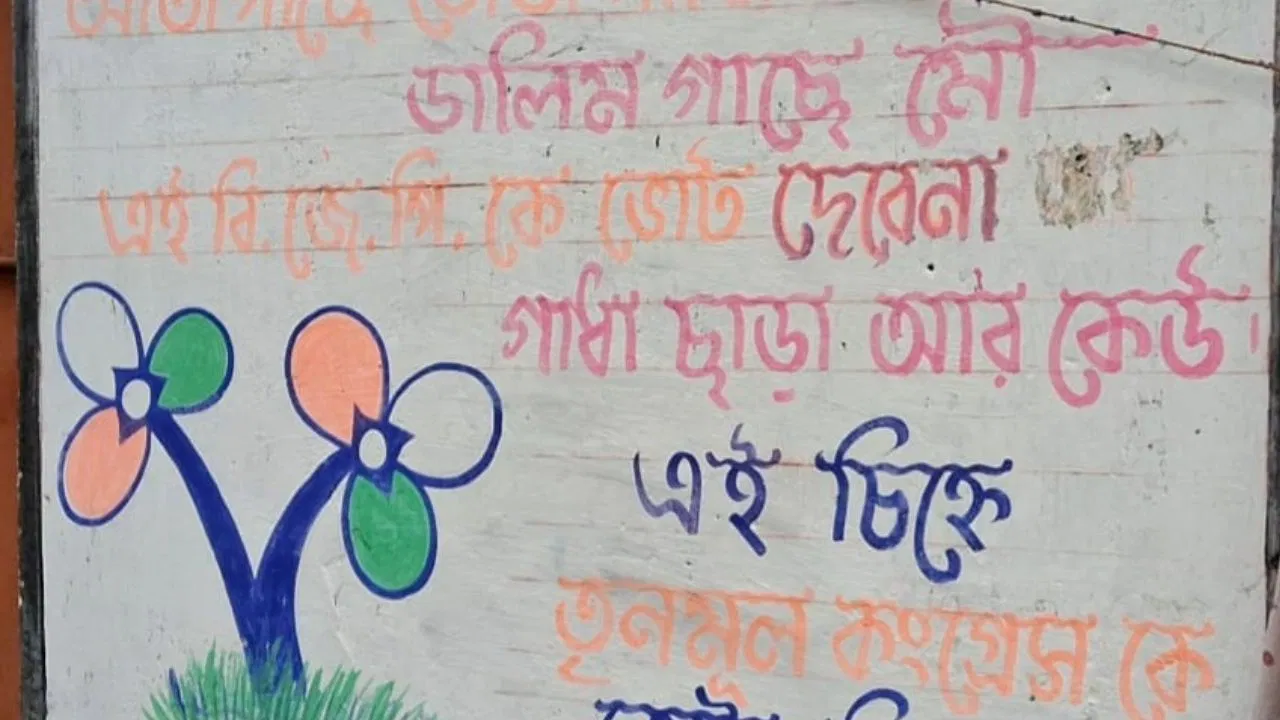 আতা গাছে তোতা
ডালিম গাছে মৌ
এই বি.জে.পি.কে ভোট দেবেনা
গাধা ছাড়া আর কেউ।
এই চিহ্নে
তৃনমূল কংগ্রেস কে